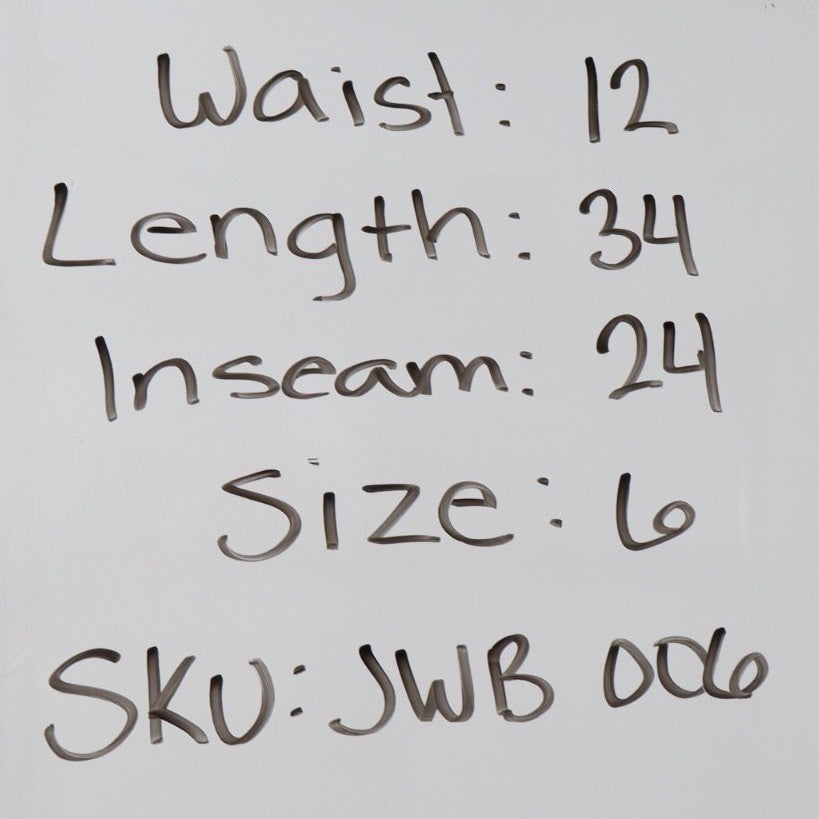 Waist: 12
Length: 34
Inseam: 24
Size: 6
SKU: JWB 006